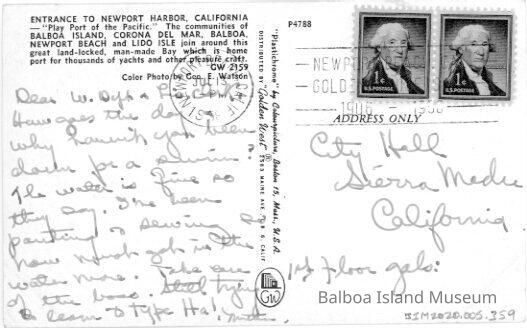 ENTRANCE TO NEWPORT HARBOR, CALIFORNIA
— "Play Port of the Pacific." The communities of
BALBOA ISLAND, CORONA DEL MAR, BALBOA,
NEWPORT BEACH and LIDO ISLE join around this
great land-locked, man-made Bay which is home
port for thousands of yachts and other pleasure craft.
GW 2159
Color Photo by Geo. E. Watson
Dear W. Dept &
How goes the day
why haven't you been
down for a swim
The water is fine so
they say. I've been
painting & sewing &
how much gets in the
water more. Take care
of the boss. Still trying
to learn to type Ha!
P4788
"Plastichrome" by Colourpicture, Boston 15, Mass., U.S.A.
DISTRIBUTED BY "Golden West"
NEWPORT
GOLD
1906 - 1956
1¢
U.S. POSTAGE
1¢
U.S. POSTAGE
ADDRESS ONLY
City Hall
Sierra Madre
California
1st Floor gals:
GW
Balboa Island Museum
BIM2020.005.359